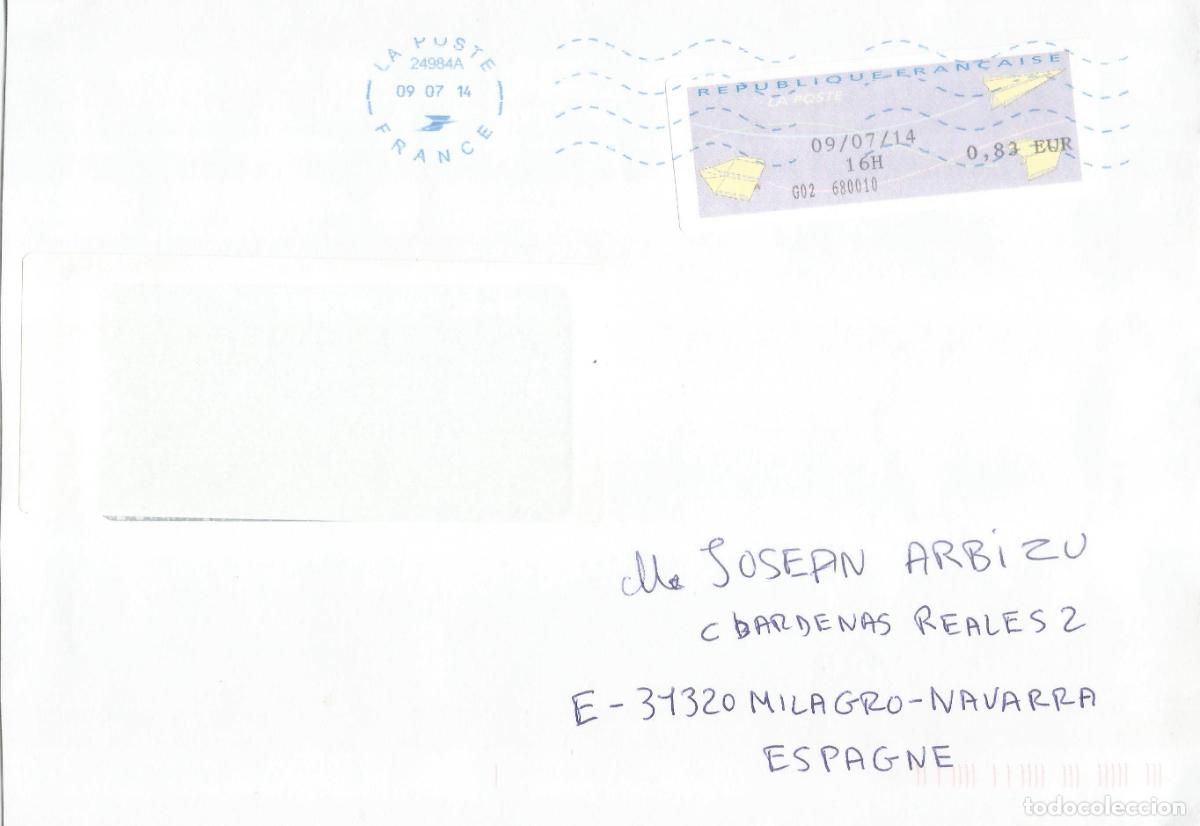 LA POSTE
24984A
09 07 14
FRANCE
REPUBLIQUE FRANÇAISE
LA POSTE
09/07/14
16H
0,83 EUR
G02 680010
M. JOSEAN ARBIZU
C BARDENAS REALES 2
E - 31320 MILAGRO-NAVARRA
ESPAGNE
todocoleccion